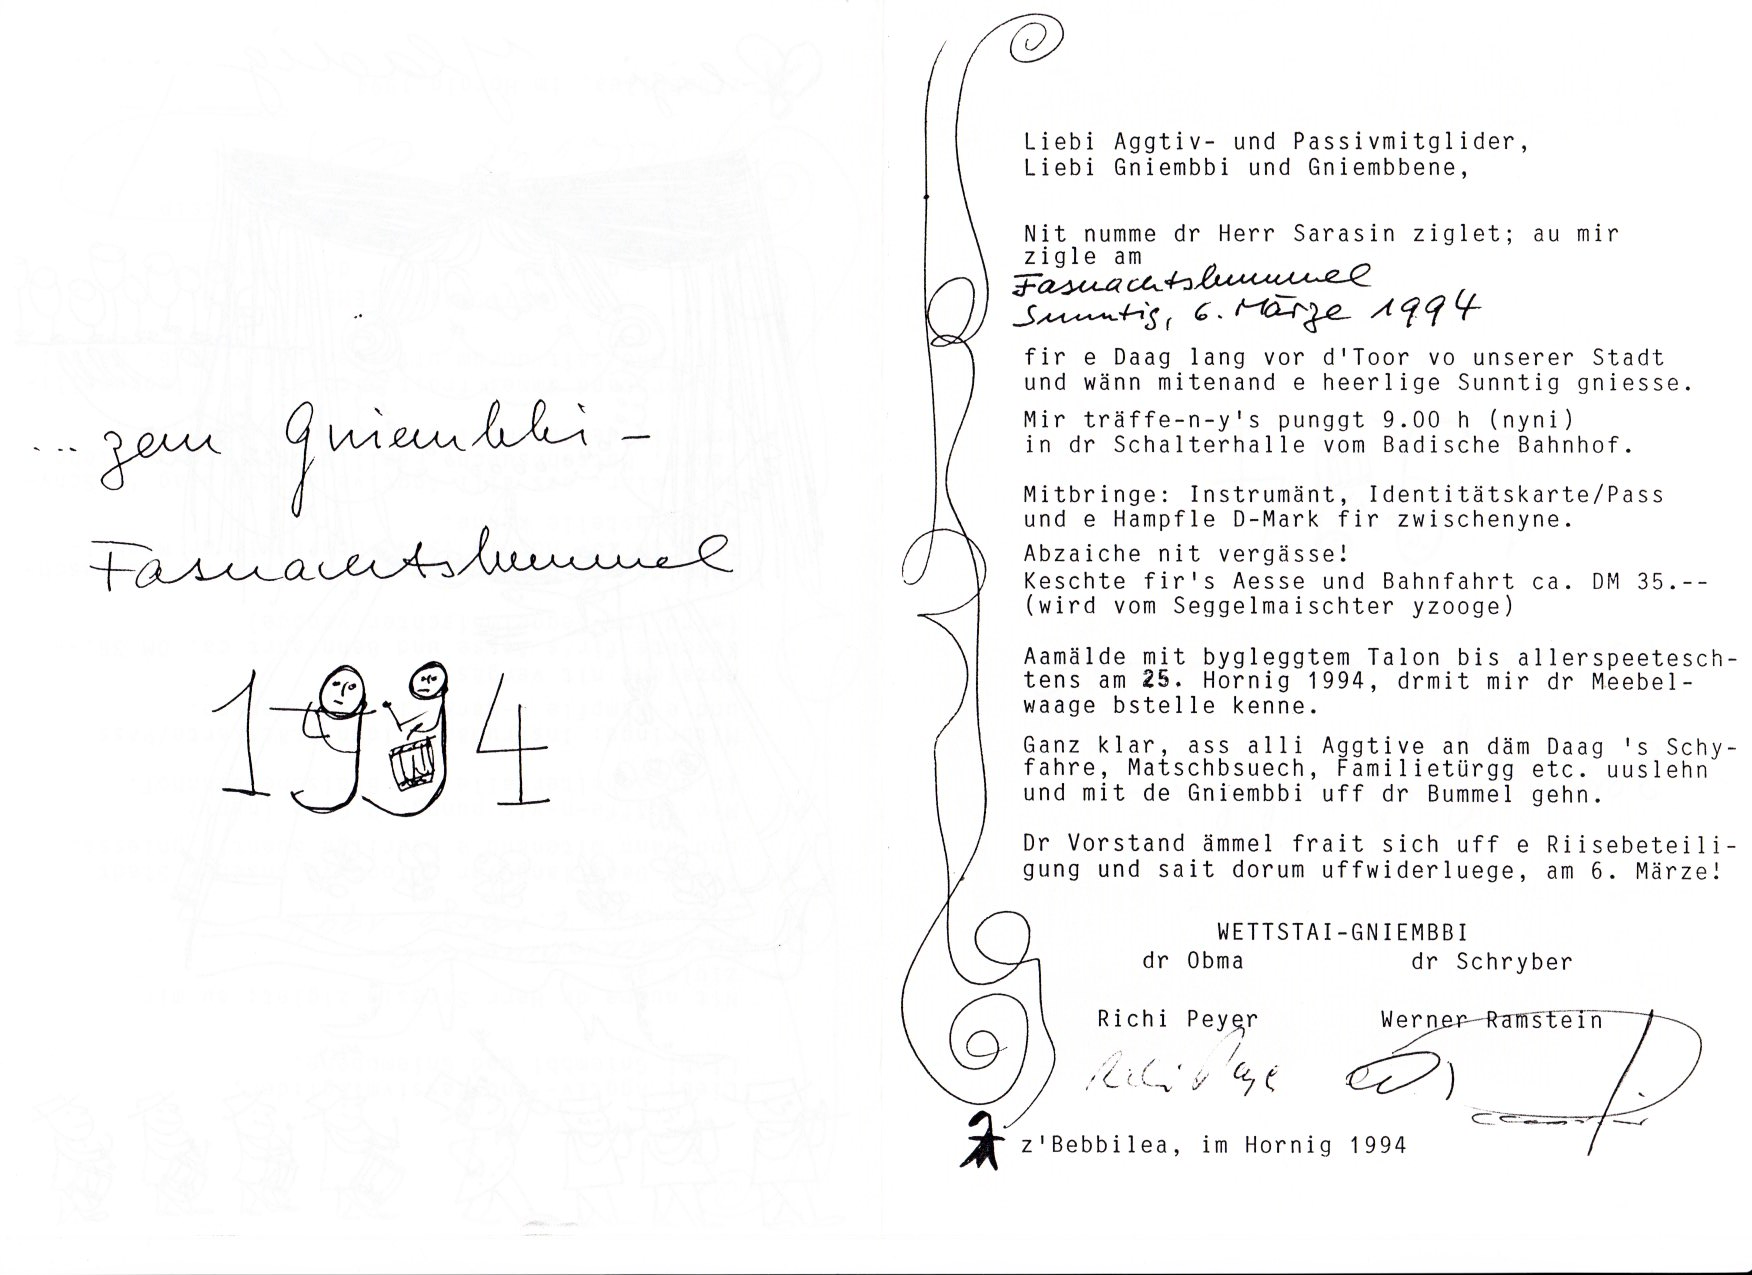 ... zem Gniembbi-
Fasnachtsbummel
1994
Liebi Aggtiv- und Passivmitglider,
Liebi Gniembbi und Gniembbene,
Nit numme dr Herr Sarasin ziglet; au mir
zigle am
Fasnachtsbummel
Sunntig, 6. Märze 1994
fir e Daag lang vor d'Toor vo unserer Stadt
und wänn mitenand e heerlige Sunntig gniesse.
Mir träffe-n-y's punggt 9.00 h (nyni)
in dr Schalterhalle vom Badische Bahnhof.
Mitbringe: Instrumänt, Identitätskarte/Pass
und e Hampfle D-Mark fir zwischenyne.
Abzaiche nit vergässe!
Keschte fir's Aesse und Bahnfahrt ca. DM 35.--
(wird vom Seggelmaischter yzooge)
Aamälde mit bygleggtem Talon bis allerspeetesch-
tens am 25. Hornig 1994, drmit mir dr Meebel-
waage bstelle kenne.
Ganz klar, ass alli Aggtive an däm Daag 's Schy-
fahre, Matschbsuech, Familietürgg etc. uuslehn
und mit de Gniembbi uff dr Bummel gehn.
Dr Vorstand ämmel frait sich uff e Riisebeteili-
gung und sait dorum uffwiderluege, am 6. Märze!
WETTSTAI-GNIEMBBI
dr Obma dr Schryber
Richi Peyer Werner Ramstein
Richi Peyer
z'Bebbilea, im Hornig 1994